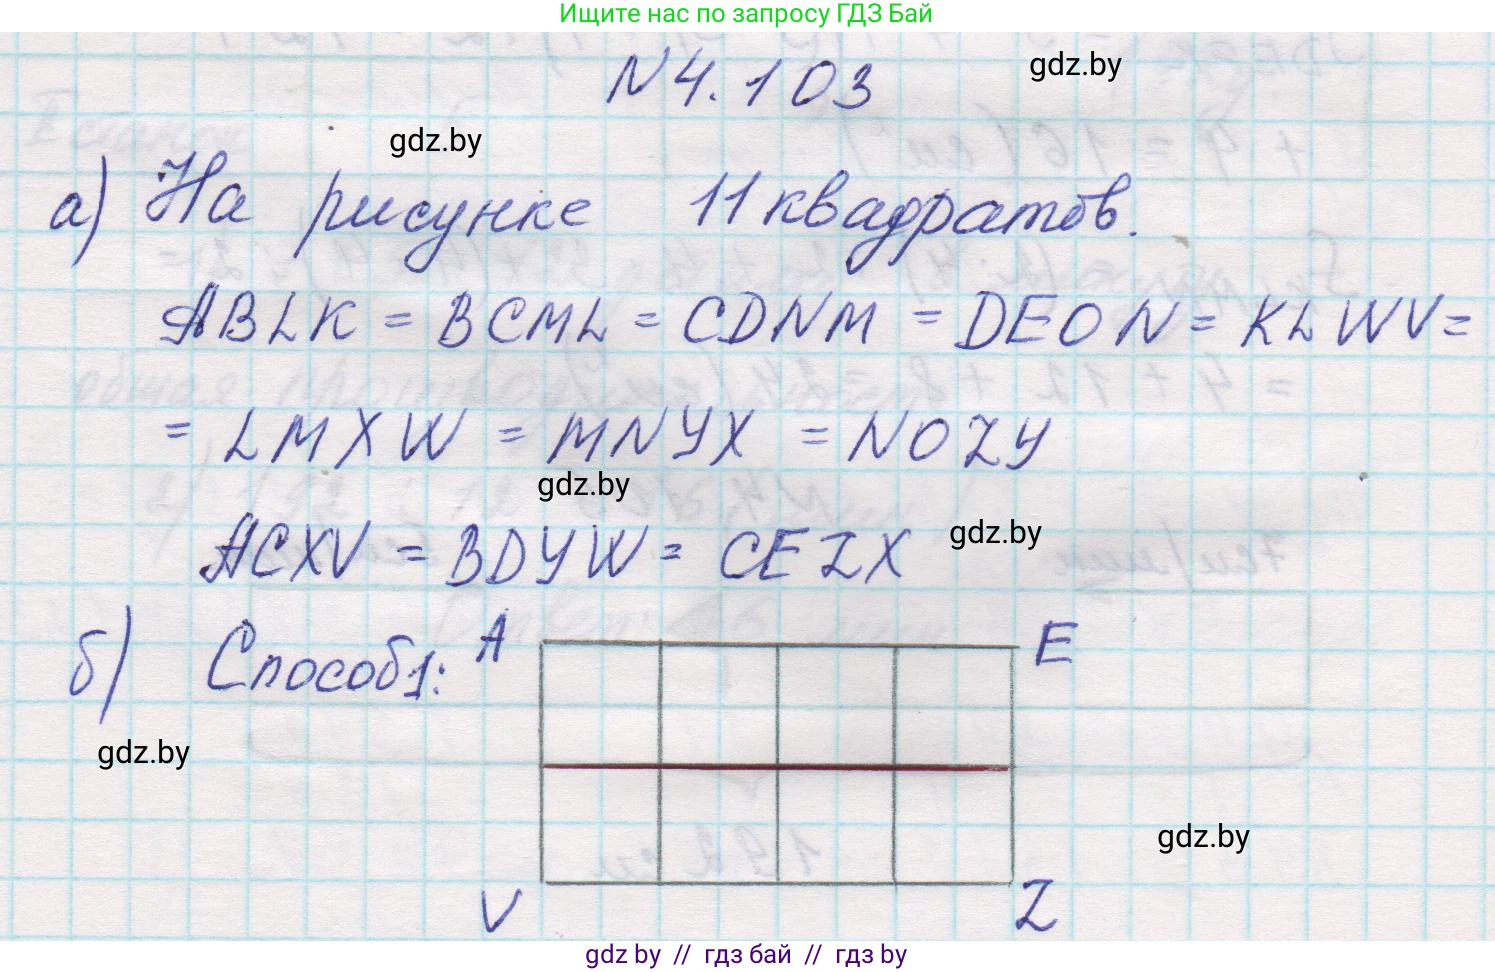 Ищите нас по запросу ГДЗ Бай
N 4.103
gdz.by
gdz.by
а) На рисунке 11 квадратов.
ABLK = BCML = CDNM = DEON = KLWV =
= LMXW = MNYX = NOZY
gdz.by
ACXV = BDYW = CEZX
gdz.by
б) Способ 1: A E
gdz.by
gdz.by
V Z
gdz by // гдз бай // гдз by